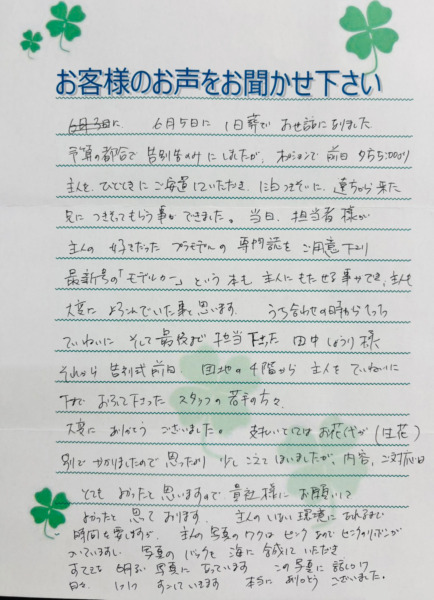 お客様のお声をお聞かせ下さい
6月5日に 1日葬で お世話になりました
予算の都合で 告別式のみに しましたが、オプションで 前日 夕方5:00より
主人を ひとときに ご安置していただき、 遠方から来た
兄に つきそってもらう事ができました。 当日、担当者様が
主人の 好きだった プラモデルの 専門誌を ご用意下さり
最新号の「モデルカー」という 本も 主人に もたせる事ができ、主人も
大変に よろこんでいた事と思います。 うち合わせの時から
ていねいに そして最後まで 担当下さった 田中 様
それから 告別式前日 団地の4階から 主人を ていねいに
下まで おろして下さった スタッフの 若手の方々
大変に ありがとう ございました。 お花代が (生花)
別で かかりましたので 思ったより 少し こえてしまいましたが、内容、ご対応は
とても よかったと 思いますので 貴社様に お願いして
よかったと 思って おります。 主人の いない 環境に なれるまで
時間を要しますが、 主人の 写真の ワクは ピンク なので ピンクのリボンが
ついていますし、 写真の バックを 海に 合成して いただき
すてきな 明るい 写真に なっています この写真に 話しかけ
日々、 すごしています 本当に ありがとう ございました。